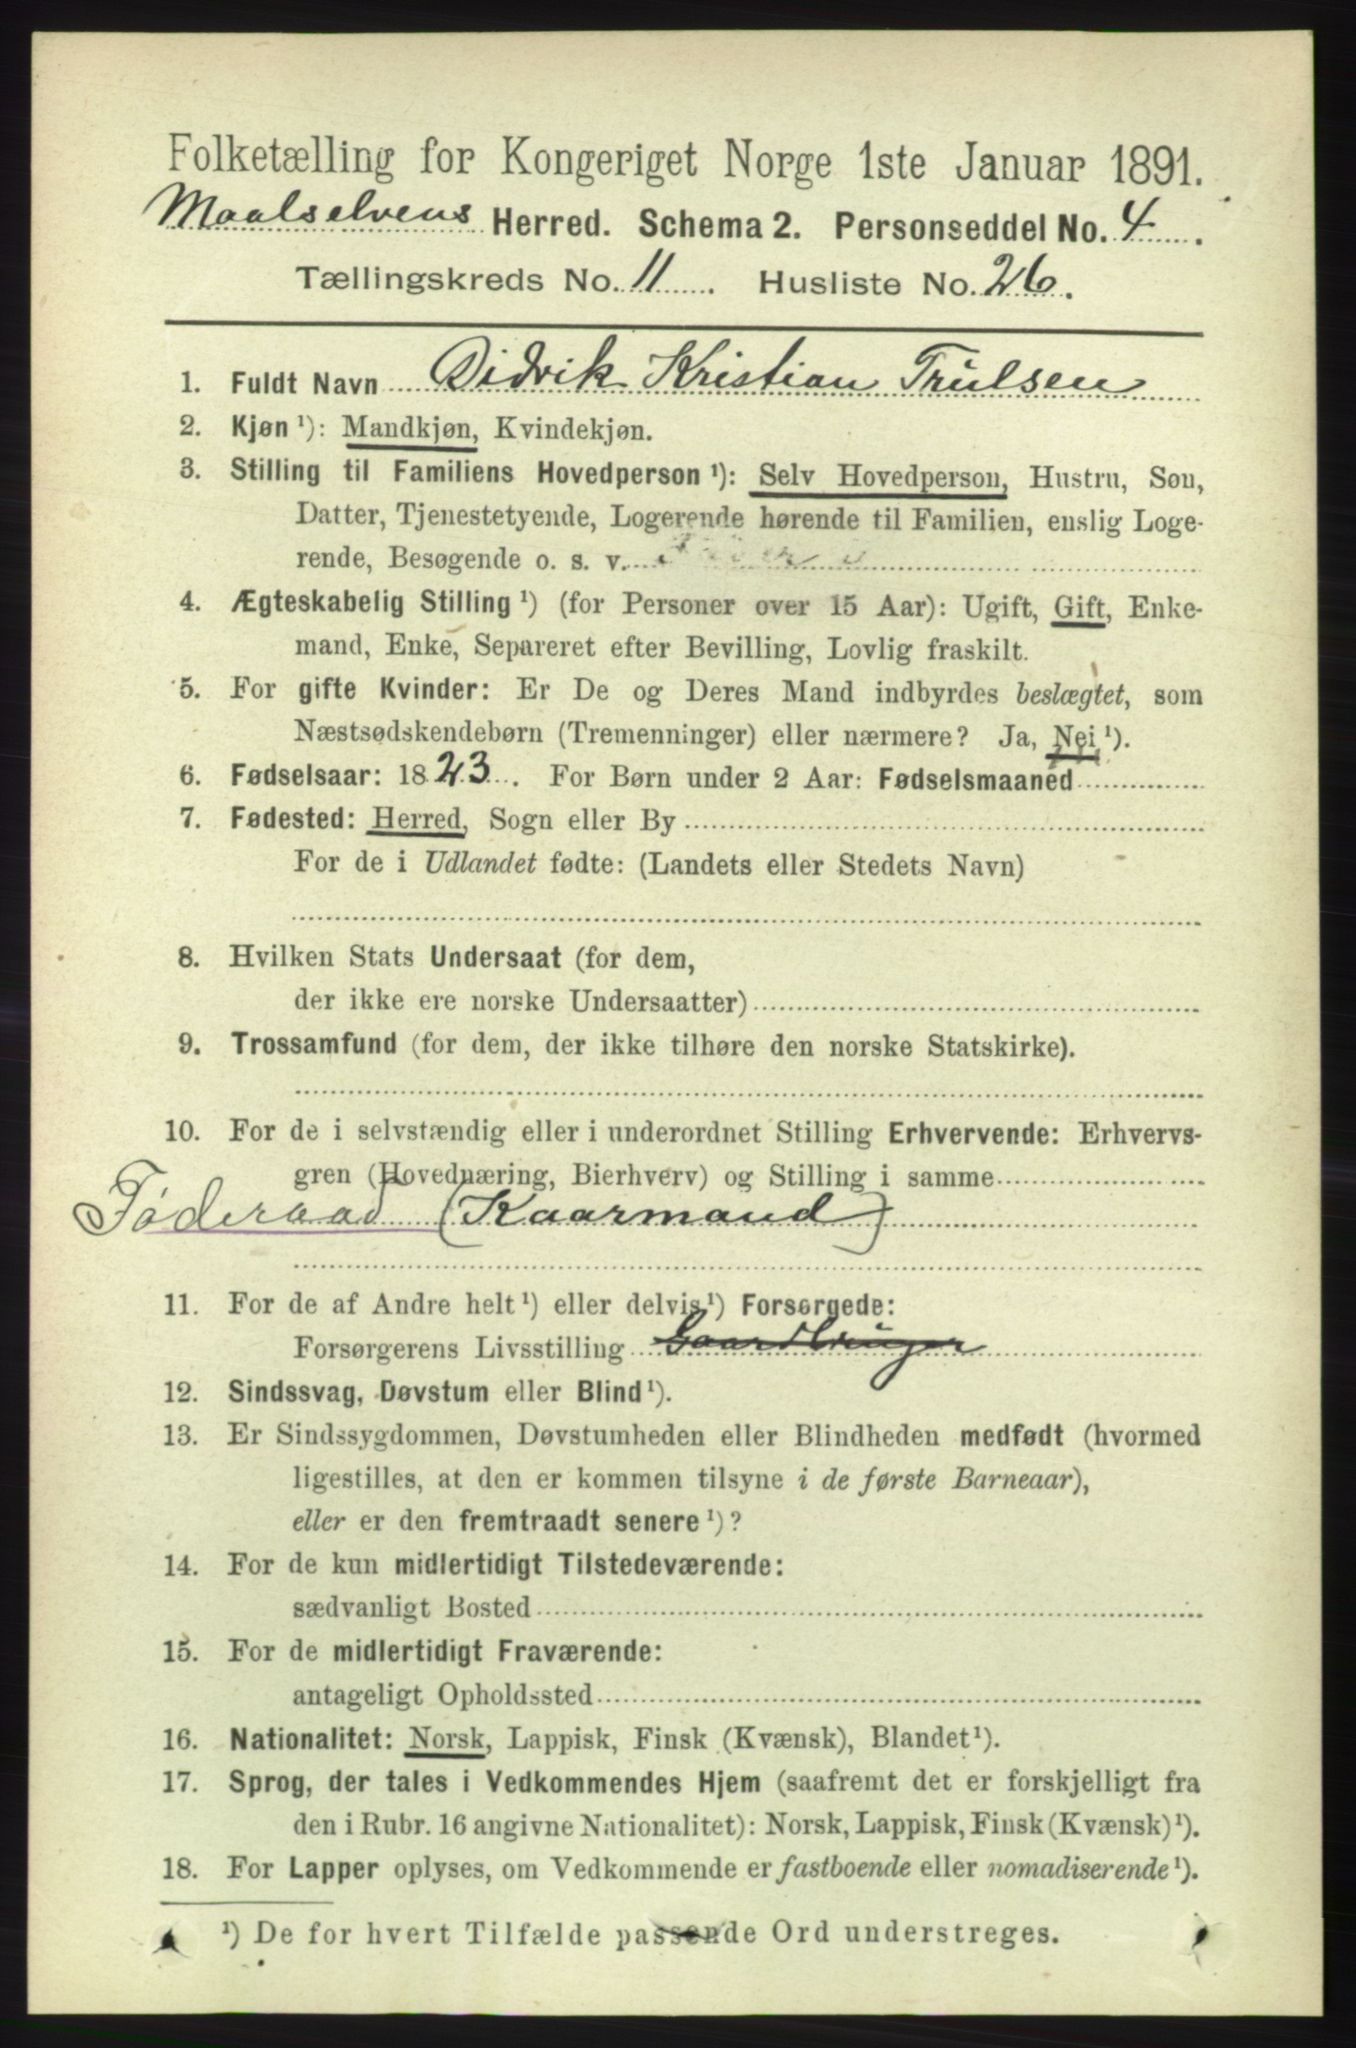 Folketælling for Kongeriget Norge 1ste Januar 1891.
Maalselvens Herred. Schema 2. Personseddel No. 4.
Tællingskreds No. 11. Husliste No. 26.
1. Fuldt Navn Didrik Kristian Trulsen
2. Kjøn ¹): Mandkjøn, Kvindekjøn.
3. Stilling til Familiens Hovedperson ¹): Selv Hovedperson, Hustru, Søn,
Datter, Tjenestetyende, Logerende hørende til Familien, enslig Loge-
rende, Besøgende o. s. v.
4. Ægteskabelig Stilling ¹) (for Personer over 15 Aar): Ugift, Gift, Enke-
mand, Enke, Separeret efter Bevilling, Lovlig fraskilt.
5. For gifte Kvinder: Er De og Deres Mand indbyrdes beslægtet, som
Næstsødskendebørn (Tremenninger) eller nærmere? Ja, Nei ¹).
6. Fødselsaar: 1823. For Børn under 2 Aar: Fødselsmaaned
7. Fødested: Herred, Sogn eller By
For de i Udlandet fødte: (Landets eller Stedets Navn)
8. Hvilken Stats Undersaat (for dem,
der ikke ere norske Undersaatter)
9. Trossamfund (for dem, der ikke tilhøre den norske Statskirke).
10. For de i selvstændig eller i underordnet Stilling Erhvervende: Erhvervs-
gren (Hovednæring, Bierhverv) og Stilling i samme
Føderaad (Kaarmand)
11. For de af Andre helt ¹) eller delvis ¹) Forsørgede:
Forsørgerens Livsstilling Gaardbruger
12. Sindssvag, Døvstum eller Blind ¹).
13. Er Sindssygdommen, Døvstumheden eller Blindheden medfødt (hvormed
ligestilles, at den er kommen tilsyne i de første Barneaar),
eller er den fremtraadt senere ¹)?
14. For de kun midlertidigt Tilstedeværende:
sædvanligt Bosted
15. For de midlertidigt Fraværende:
antageligt Opholdssted
16. Nationalitet: Norsk, Lappisk, Finsk (Kvænsk), Blandet ¹).
17. Sprog, der tales i Vedkommendes Hjem (saafremt det er forskjelligt fra
den i Rubr. 16 angivne Nationalitet): Norsk, Lappisk, Finsk (Kvænsk) ¹).
18. For Lapper oplyses, om Vedkommende er fastboende eller nomadiserende ¹).
¹) De for hvert Tilfælde passende Ord understreges.